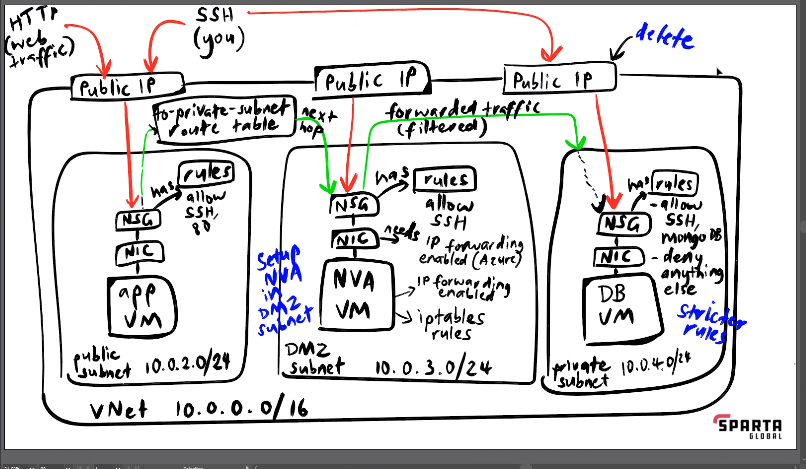 HTTP
(web
traffic)
SSH
(you)
delete
Public IP
Public IP
Public IP
to-private-subnet
route table
next
hop
forwarded traffic
(filtered)
has
rules
allow
SSH,
80
NSG
NIC
app
VM
public
subnet 10.0.2.0/24
Setup
NVA
in
DMZ
subnet
has
rules
allow
SSH
NSG
NIC
needs
IP forwarding
enabled (Azure)
NVA
VM
IP forwarding
enabled
iptables
rules
DMZ
subnet 10.0.3.0/24
has
rules
- allow
SSH,
MongoDB
- deny
anything
else
NSG
NIC
DB
VM
Stricter
rules
private
subnet 10.0.4.0/24
VNet 10.0.0.0/16
SPARTA
GLOBAL